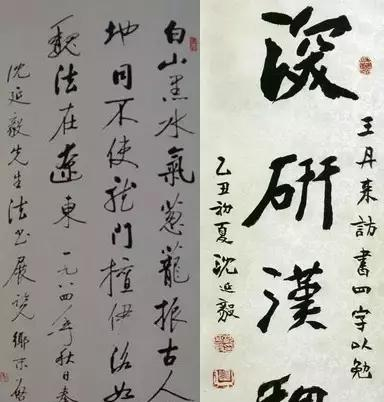 白山黑水氣蔥蘢振古人
地同不使龍門擅伊洛如
魏法在遼東 一九八四年秋日奉
沈延毅先生法書展覽
深研漢
王丹来訪書四字以勉
乙丑初夏沈延毅